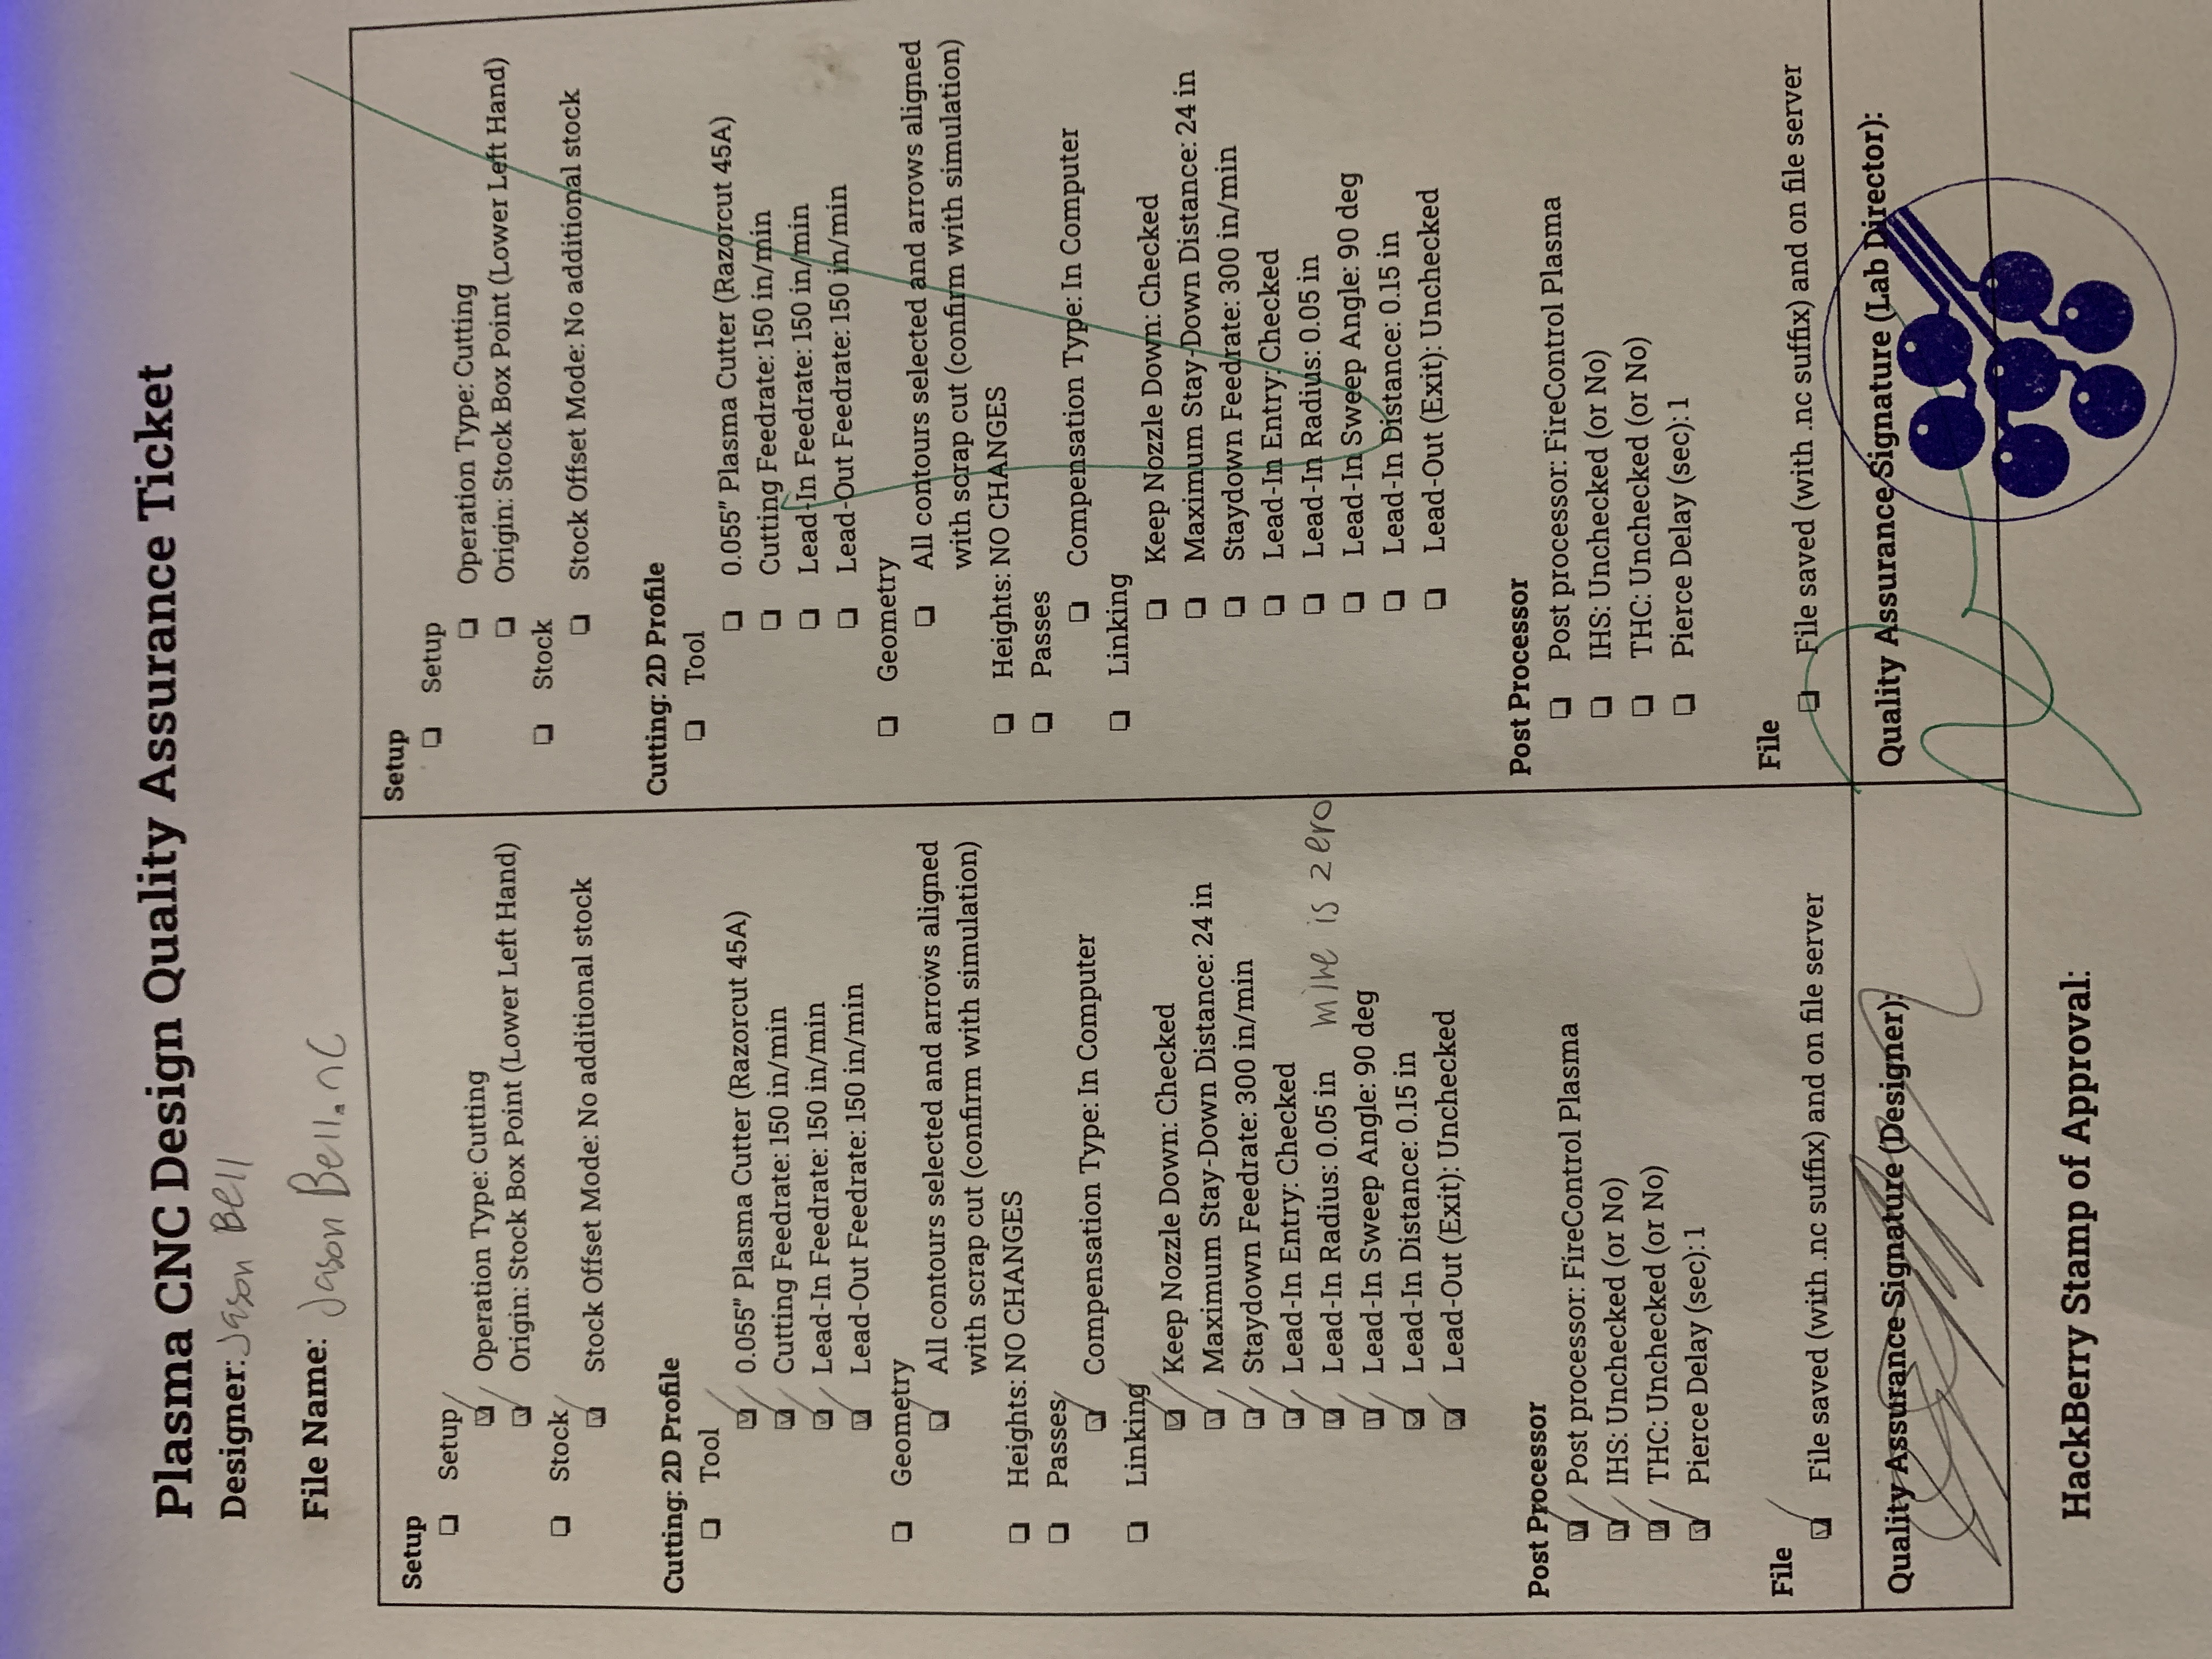 Plasma CNC Design Quality Assurance Ticket
Designer: Jason Bell
File Name: Jason Bell.nc
Setup
Setup
Operation Type: Cutting
Origin: Stock Box Point (Lower Left Hand)
Stock
Stock Offset Mode: No additional stock
Cutting: 2D Profile
Tool
0.055” Plasma Cutter (Razorcut 45A)
Cutting Feedrate: 150 in/min
Lead-In Feedrate: 150 in/min
Lead-Out Feedrate: 150 in/min
Geometry
All contours selected and arrows aligned
with scrap cut (confirm with simulation)
Heights: NO CHANGES
Passes
Compensation Type: In Computer
Linking
Keep Nozzle Down: Checked
Maximum Stay-Down Distance: 24 in
Staydown Feedrate: 300 in/min
Lead-In Entry: Checked
Lead-In Radius: 0.05 in mine is zero
Lead-In Sweep Angle: 90 deg
Lead-In Distance: 0.15 in
Lead-Out (Exit): Unchecked
Post Processor
Post processor: FireControl Plasma
IHS: Unchecked (or No)
THC: Unchecked (or No)
Pierce Delay (sec): 1
File
File saved (with .nc suffix) and on file server
Quality Assurance Signature (Designer):
Setup
Setup
Operation Type: Cutting
Origin: Stock Box Point (Lower Left Hand)
Stock
Stock Offset Mode: No additional stock
Cutting: 2D Profile
Tool
0.055” Plasma Cutter (Razorcut 45A)
Cutting Feedrate: 150 in/min
Lead-In Feedrate: 150 in/min
Lead-Out Feedrate: 150 in/min
Geometry
All contours selected and arrows aligned
with scrap cut (confirm with simulation)
Heights: NO CHANGES
Passes
Compensation Type: In Computer
Linking
Keep Nozzle Down: Checked
Maximum Stay-Down Distance: 24 in
Staydown Feedrate: 300 in/min
Lead-In Entry: Checked
Lead-In Radius: 0.05 in
Lead-In Sweep Angle: 90 deg
Lead-In Distance: 0.15 in
Lead-Out (Exit): Unchecked
Post Processor
Post processor: FireControl Plasma
IHS: Unchecked (or No)
THC: Unchecked (or No)
Pierce Delay (sec): 1
File
File saved (with .nc suffix) and on file server
Quality Assurance Signature (Lab Director):
HackBerry Stamp of Approval: